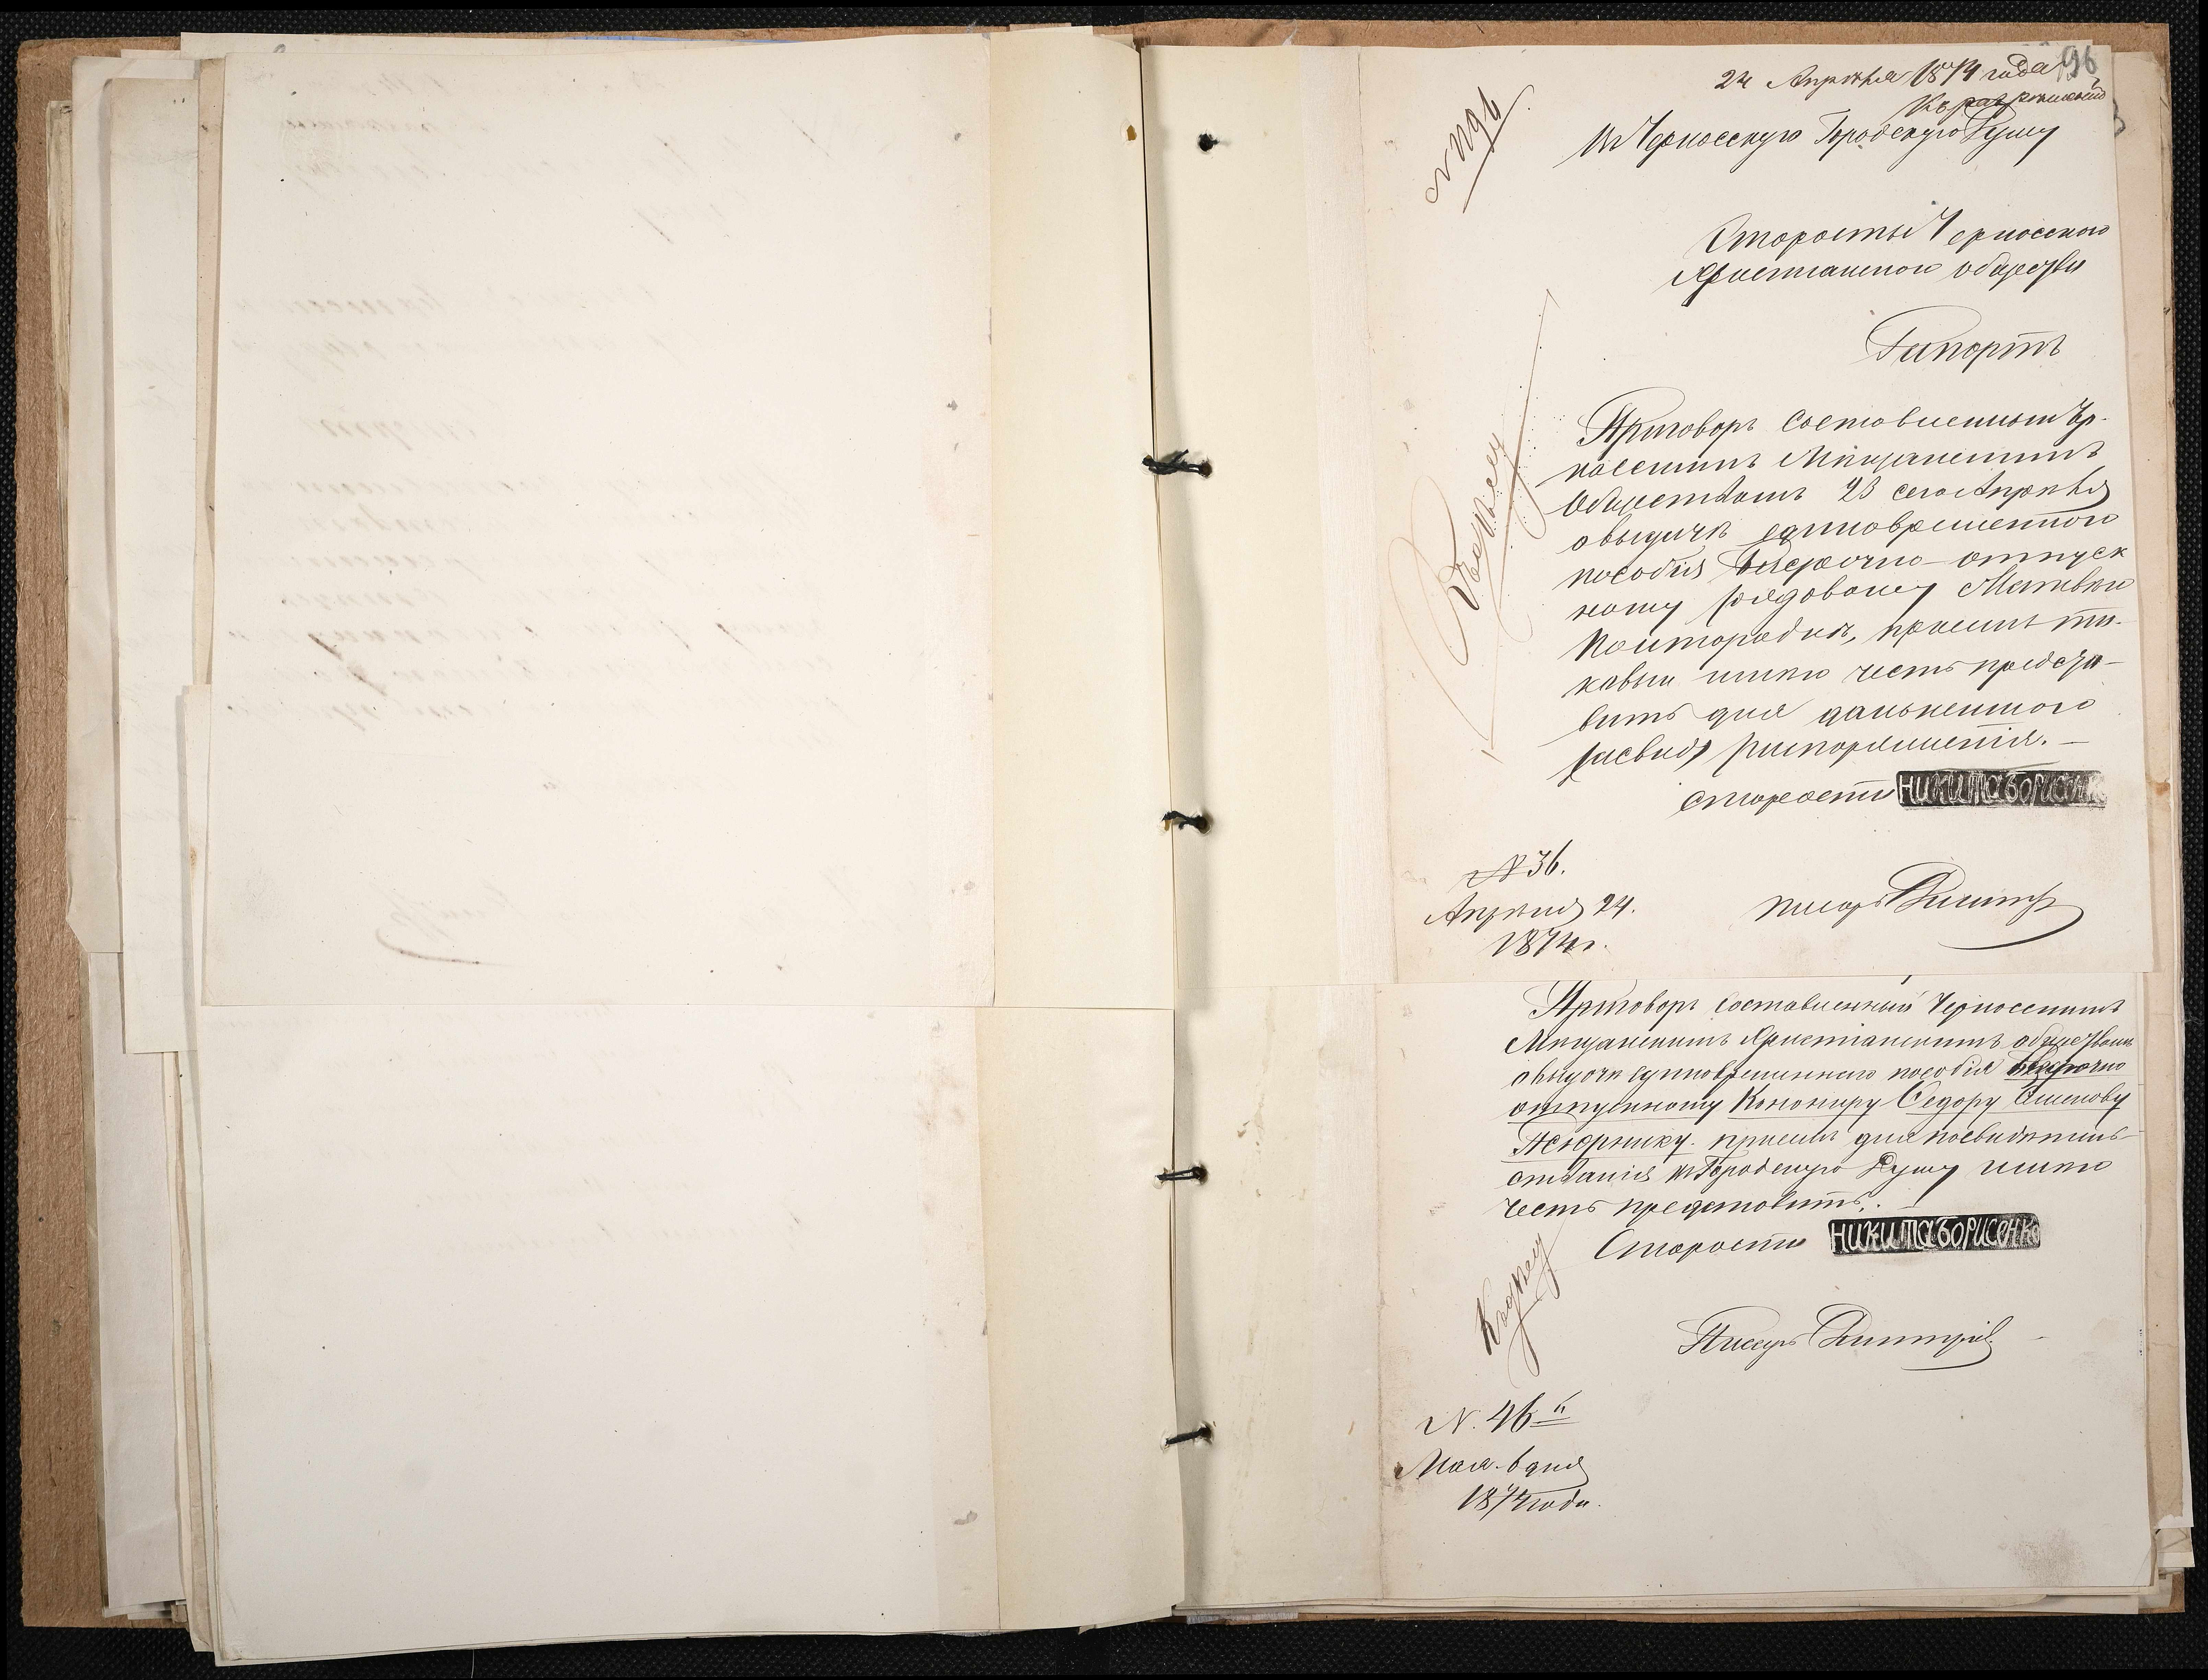 96
24 Апрѣля 1874 года
Къ
№ 1196
Въ Черкасскую Городскую Думу
Старосты Черкасского
Христианского общества
Рапортъ
Приговоръ составленный Чер-
касскимъ Мѣщанскимъ
Обществомъ 23 сего Апрѣля
о выдачѣ единовременного
пособия безсрочно-отпуск
ному рядовому Матвѣю
имѣю честь предста-
вить для дальнейшого
распоряженія.
Староста НИКИТА БОРИСЕНК
Къ дѣлу
№ 36.
Апрѣля 24.
1874 г.
писарь Дмитр
Приговоръ составленный Черкасскимъ
Мѣщанскимъ Христіанскимъ обществомъ
о выдачи единовременнаго пособія безсрочно
отпускному Канониру Федору Семенову
для посвидѣтель
ствованія въ Городскую Думу имѣю
честь представить.
Староста НИКИТА БОРИСЕНКО
Къ дѣлу
Писарь Дмитрів
N. 46
Мая 6 дня
1874 года.